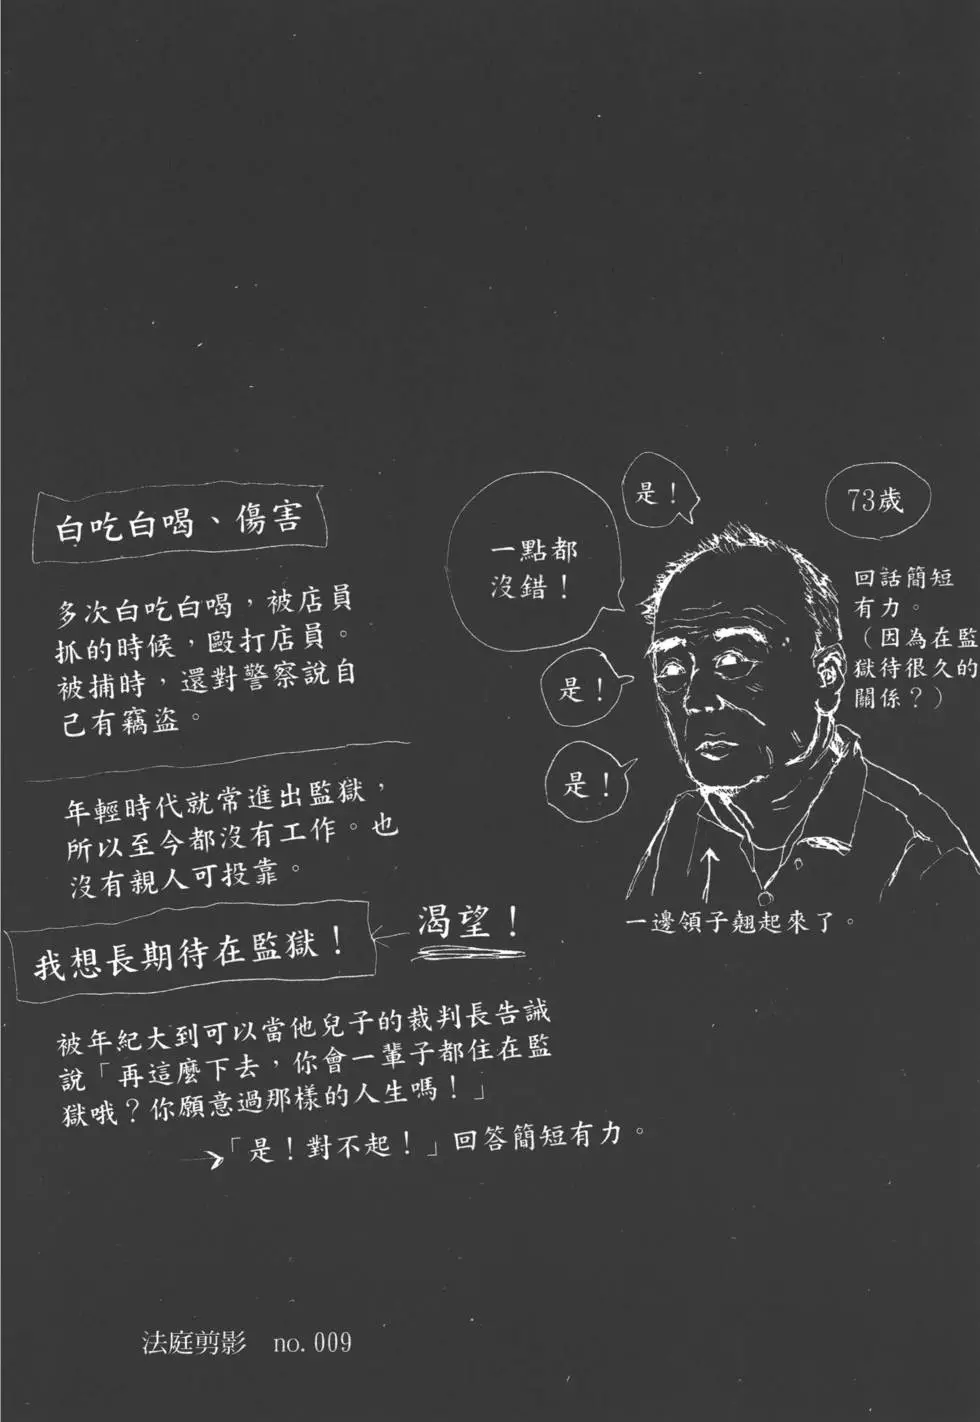 白吃白喝、傷害
多次白吃白喝，被店員
抓的時候，毆打店員。
被捕時，還對警察說自
己有竊盜。
年輕時代就常進出監獄，
所以至今都沒有工作。也
沒有親人可投靠。
我想長期待在監獄！
渴望！
被年紀大到可以當他兒子的裁判長告誡
說「再這麼下去，你會一輩子都住在監
獄哦？你願意過那樣的人生嗎！」
「是！對不起！」回答簡短有力。
是！
一點都
沒錯！
是！
是！
73歲
回話簡短
有力。
（因為在監
獄待很久的
關係？）
一邊領子翹起來了。
法庭剪影 no.009